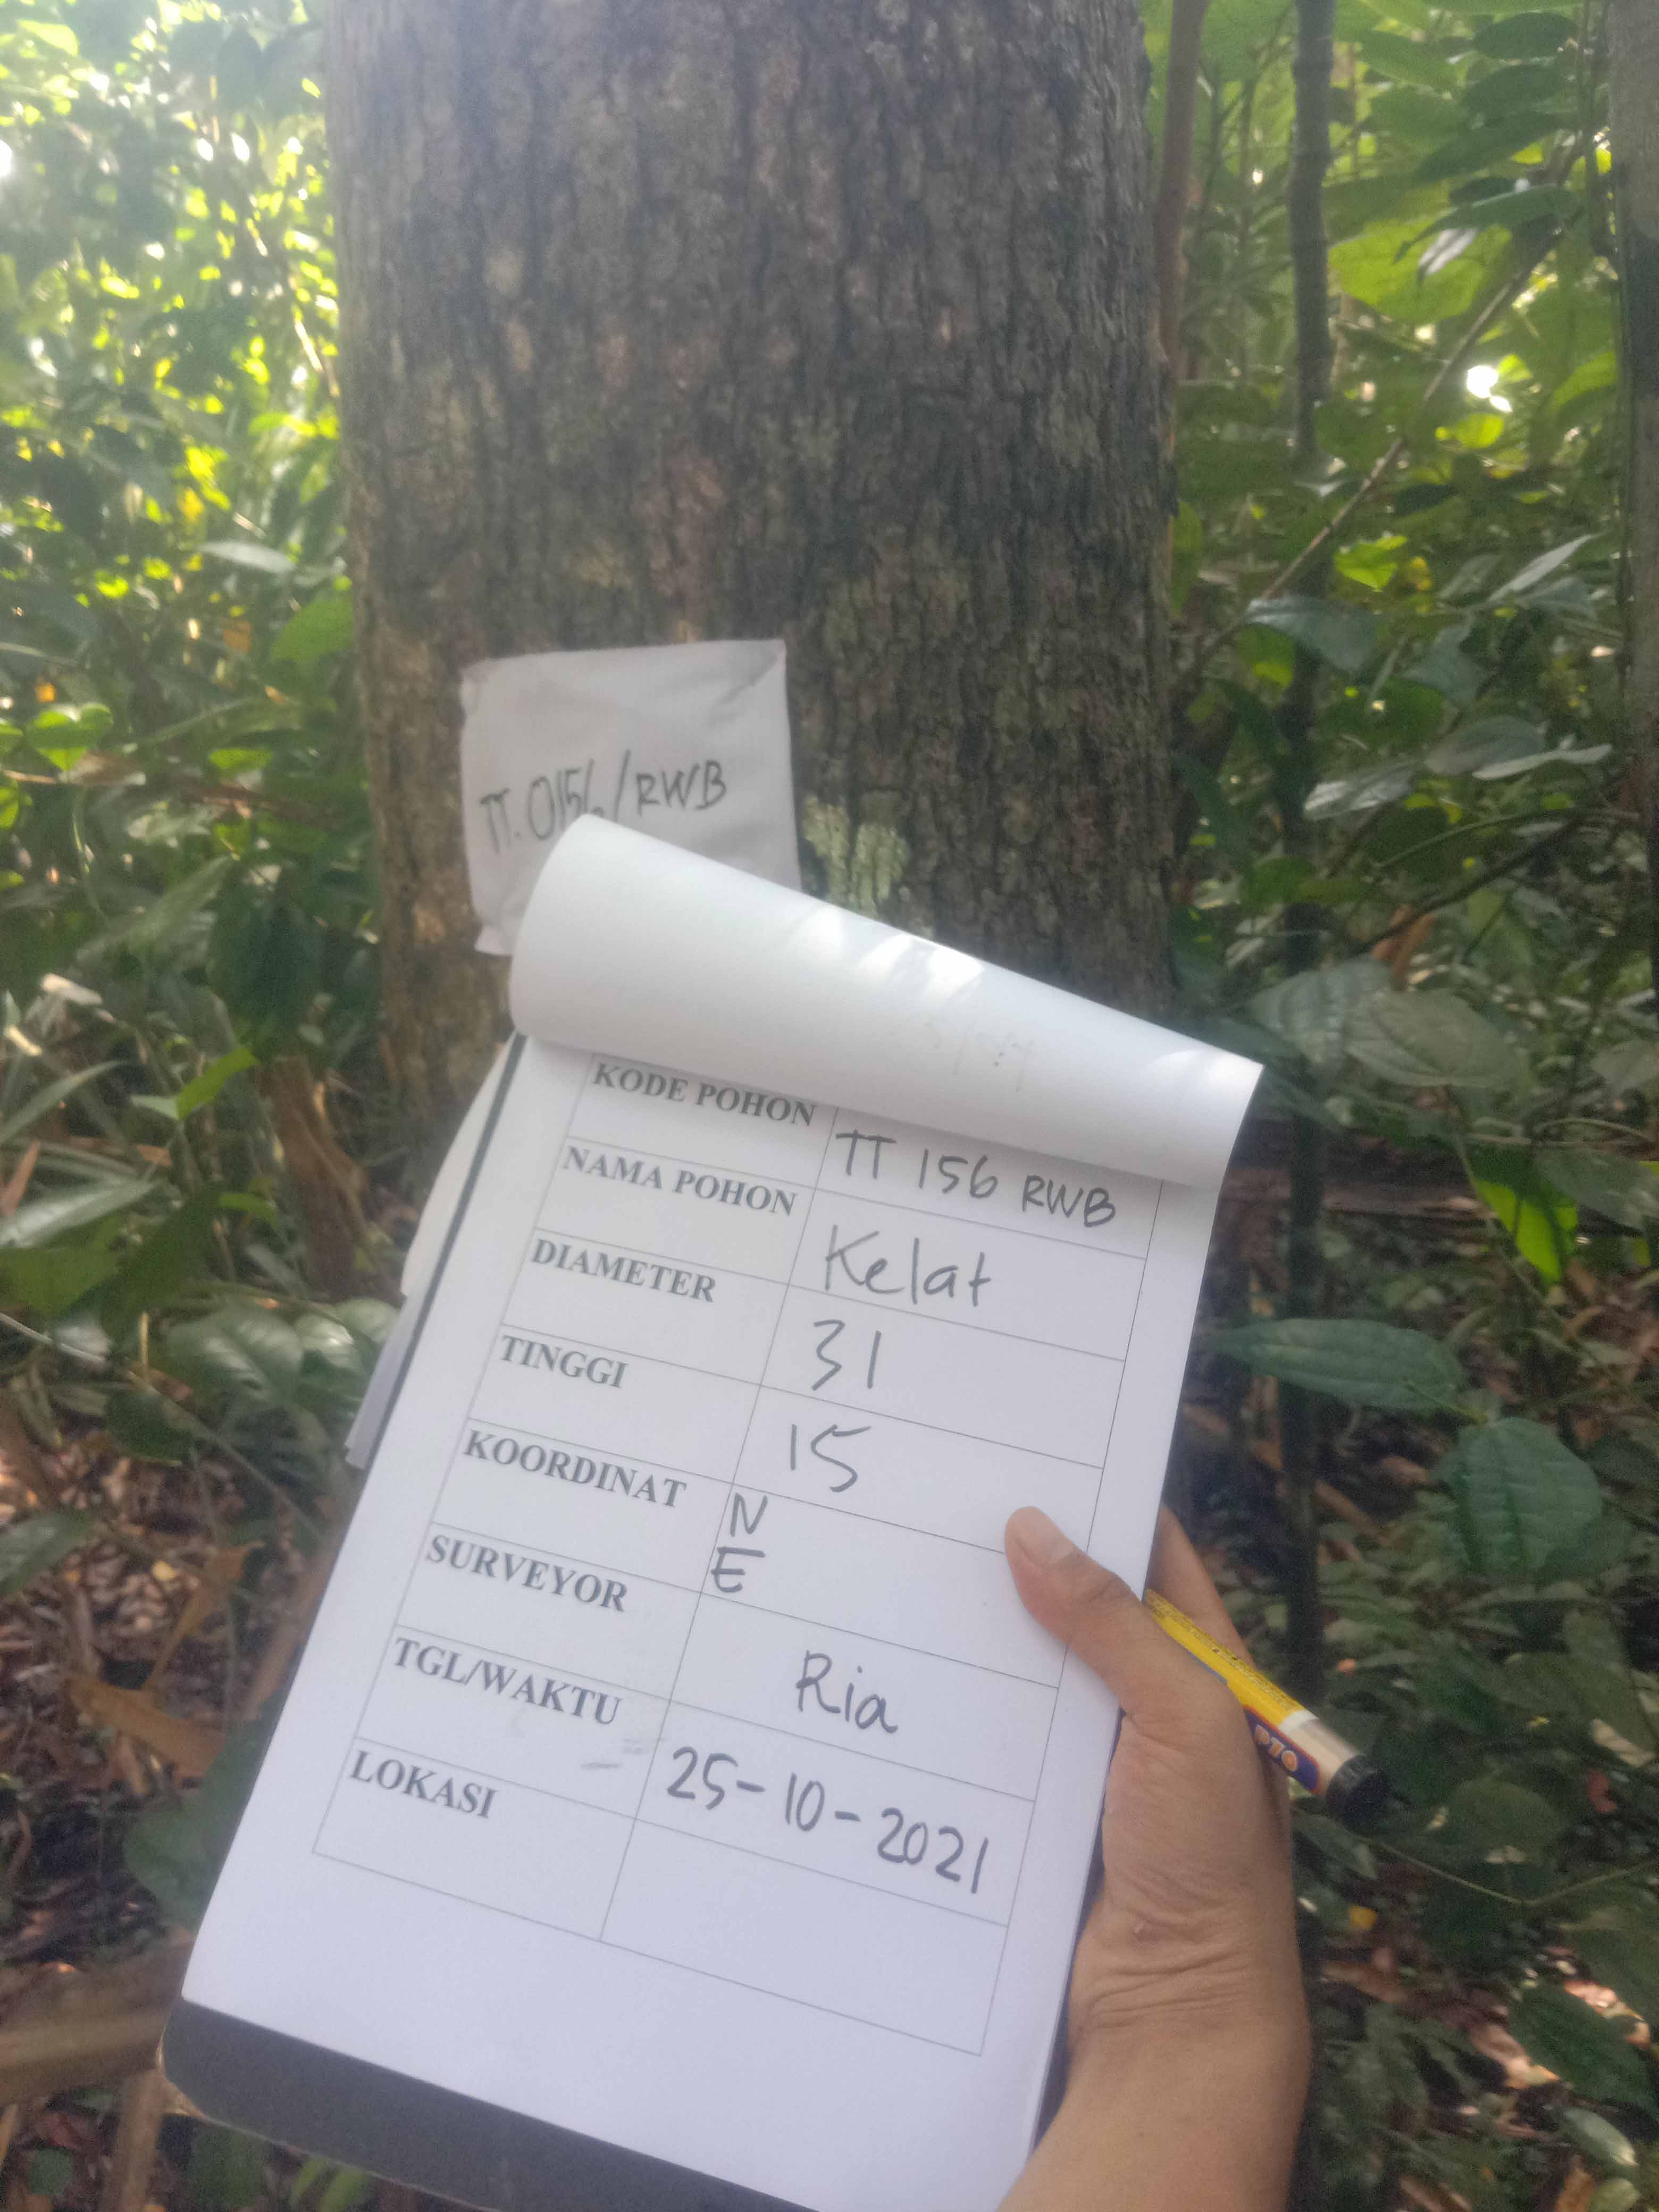 TT. 0156/RWB
KODE POHON TT 156 RWB
NAMA POHON Kelat
DIAMETER 31
TINGGI 15
KOORDINAT N
E
SURVEYOR Ria
TGL/WAKTU 25-10-2021
LOKASI